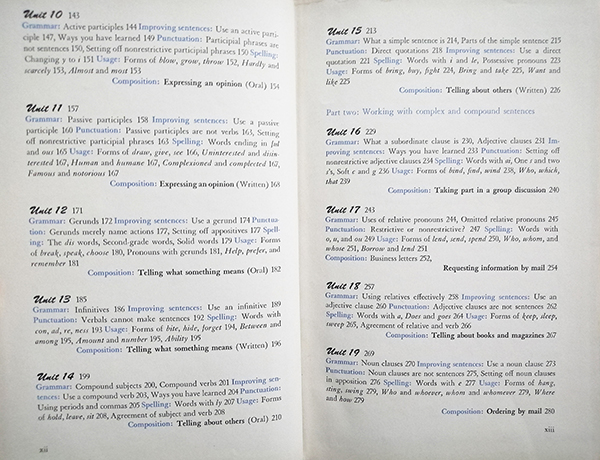 Unit 10 143
Grammar: Active participles 144 Improving sentences: Use an active parti-
ciple 147, Ways you have learned 149 Punctuation: Participial phrases are
not sentences 150, Setting off nonrestrictive participial phrases 150 Spelling:
Changing y to i 151 Usage: Forms of blow, grow, throw 152, Hardly and
scarcely 153, Almost and most 153
Composition: Expressing an opinion (Oral) 154
Unit 11 157
Grammar: Passive participles 158 Improving sentences: Use a passive
participle 160 Punctuation: Passive participles are not verbs 163, Setting
off nonrestrictive participial phrases 163 Spelling: Words ending in ful
and ous 165 Usage: Forms of draw, give, see 166, Uninterested and disin-
terested 167, Human and humane 167, Complexioned and complected 167,
Famous and notorious 167
Composition: Expressing an opinion (Written) 168
Unit 12 171
Grammar: Gerunds 172 Improving sentences: Use a gerund 174 Punctua-
tion: Gerunds merely name actions 177, Setting off appositives 177 Spell-
ing: The dis words, Second-grade words, Solid words 179 Usage: Forms
of break, speak, choose 180, Pronouns with gerunds 181, Help, prefer, and
remember 181
Composition: Telling what something means (Oral) 182
Unit 13 185
Grammar: Infinitives 186 Improving sentences: Use an infinitive 189
Punctuation: Verbals cannot make sentences 192 Spelling: Words with
con, ad, re, ness 193 Usage: Forms of bite, hide, forget 194, Between and
among 195, Amount and number 195, Ability 195
Composition: Telling what something means (Written) 196
Unit 14 199
Grammar: Compound subjects 200, Compound verbs 201 Improving sen-
tences: Use a compound verb 203, Ways you have learned 204 Punctuation:
Using periods and commas 205 Spelling: Words with ly 207 Usage: Forms
of hold, leave, sit 208, Agreement of subject and verb 208
Composition: Telling about others (Oral) 210
xii
Unit 15 213
Grammar: What a simple sentence is 214, Parts of the simple sentence 215
Punctuation: Direct quotations 218 Improving sentences: Use a direct
quotation 221 Spelling: Words with i and le, Possessive pronouns 223
Usage: Forms of bring, buy, fight 224, Bring and take 225, Want and
like 225
Composition: Telling about others (Written) 226
Part two: Working with complex and compound sentences
Unit 16 229
Grammar: What a subordinate clause is 230, Adjective clauses 231 Im-
proving sentences: Ways you have learned 233 Punctuation: Setting off
nonrestrictive adjective clauses 234 Spelling: Words with ai, One s and two
s's, Soft c and g 236 Usage: Forms of bind, find, wind 238, Who, which,
that 239
Composition: Taking part in a group discussion 240
Unit 17 243
Grammar: Uses of relative pronouns 244, Omitted relative pronouns 245
Punctuation: Restrictive or nonrestrictive? 247 Spelling: Words with
o, u, and ou 249 Usage: Forms of lend, send, spend 250, Who, whom, and
whose 251, Borrow and lend 251
Composition: Business letters 252,
Requesting information by mail 254
Unit 18 257
Grammar: Using relatives effectively 258 Improving sentences: Use an
adjective clause 260 Punctuation: Adjective clauses are not sentences 262
Spelling: Words with a, Does and goes 264 Usage: Forms of keep, sleep,
sweep 265, Agreement of relative and verb 266
Composition: Telling about books and magazines 267
Unit 19 269
Grammar: Noun clauses 270 Improving sentences: Use a noun clause 273
Punctuation: Noun clauses are not sentences 275, Setting off noun clauses
in apposition 276 Spelling: Words with e 277 Usage: Forms of hang,
sting, swing 279, Who and whoever, whom and whomever 279, Where
and how 279
Composition: Ordering by mail 280
xiii